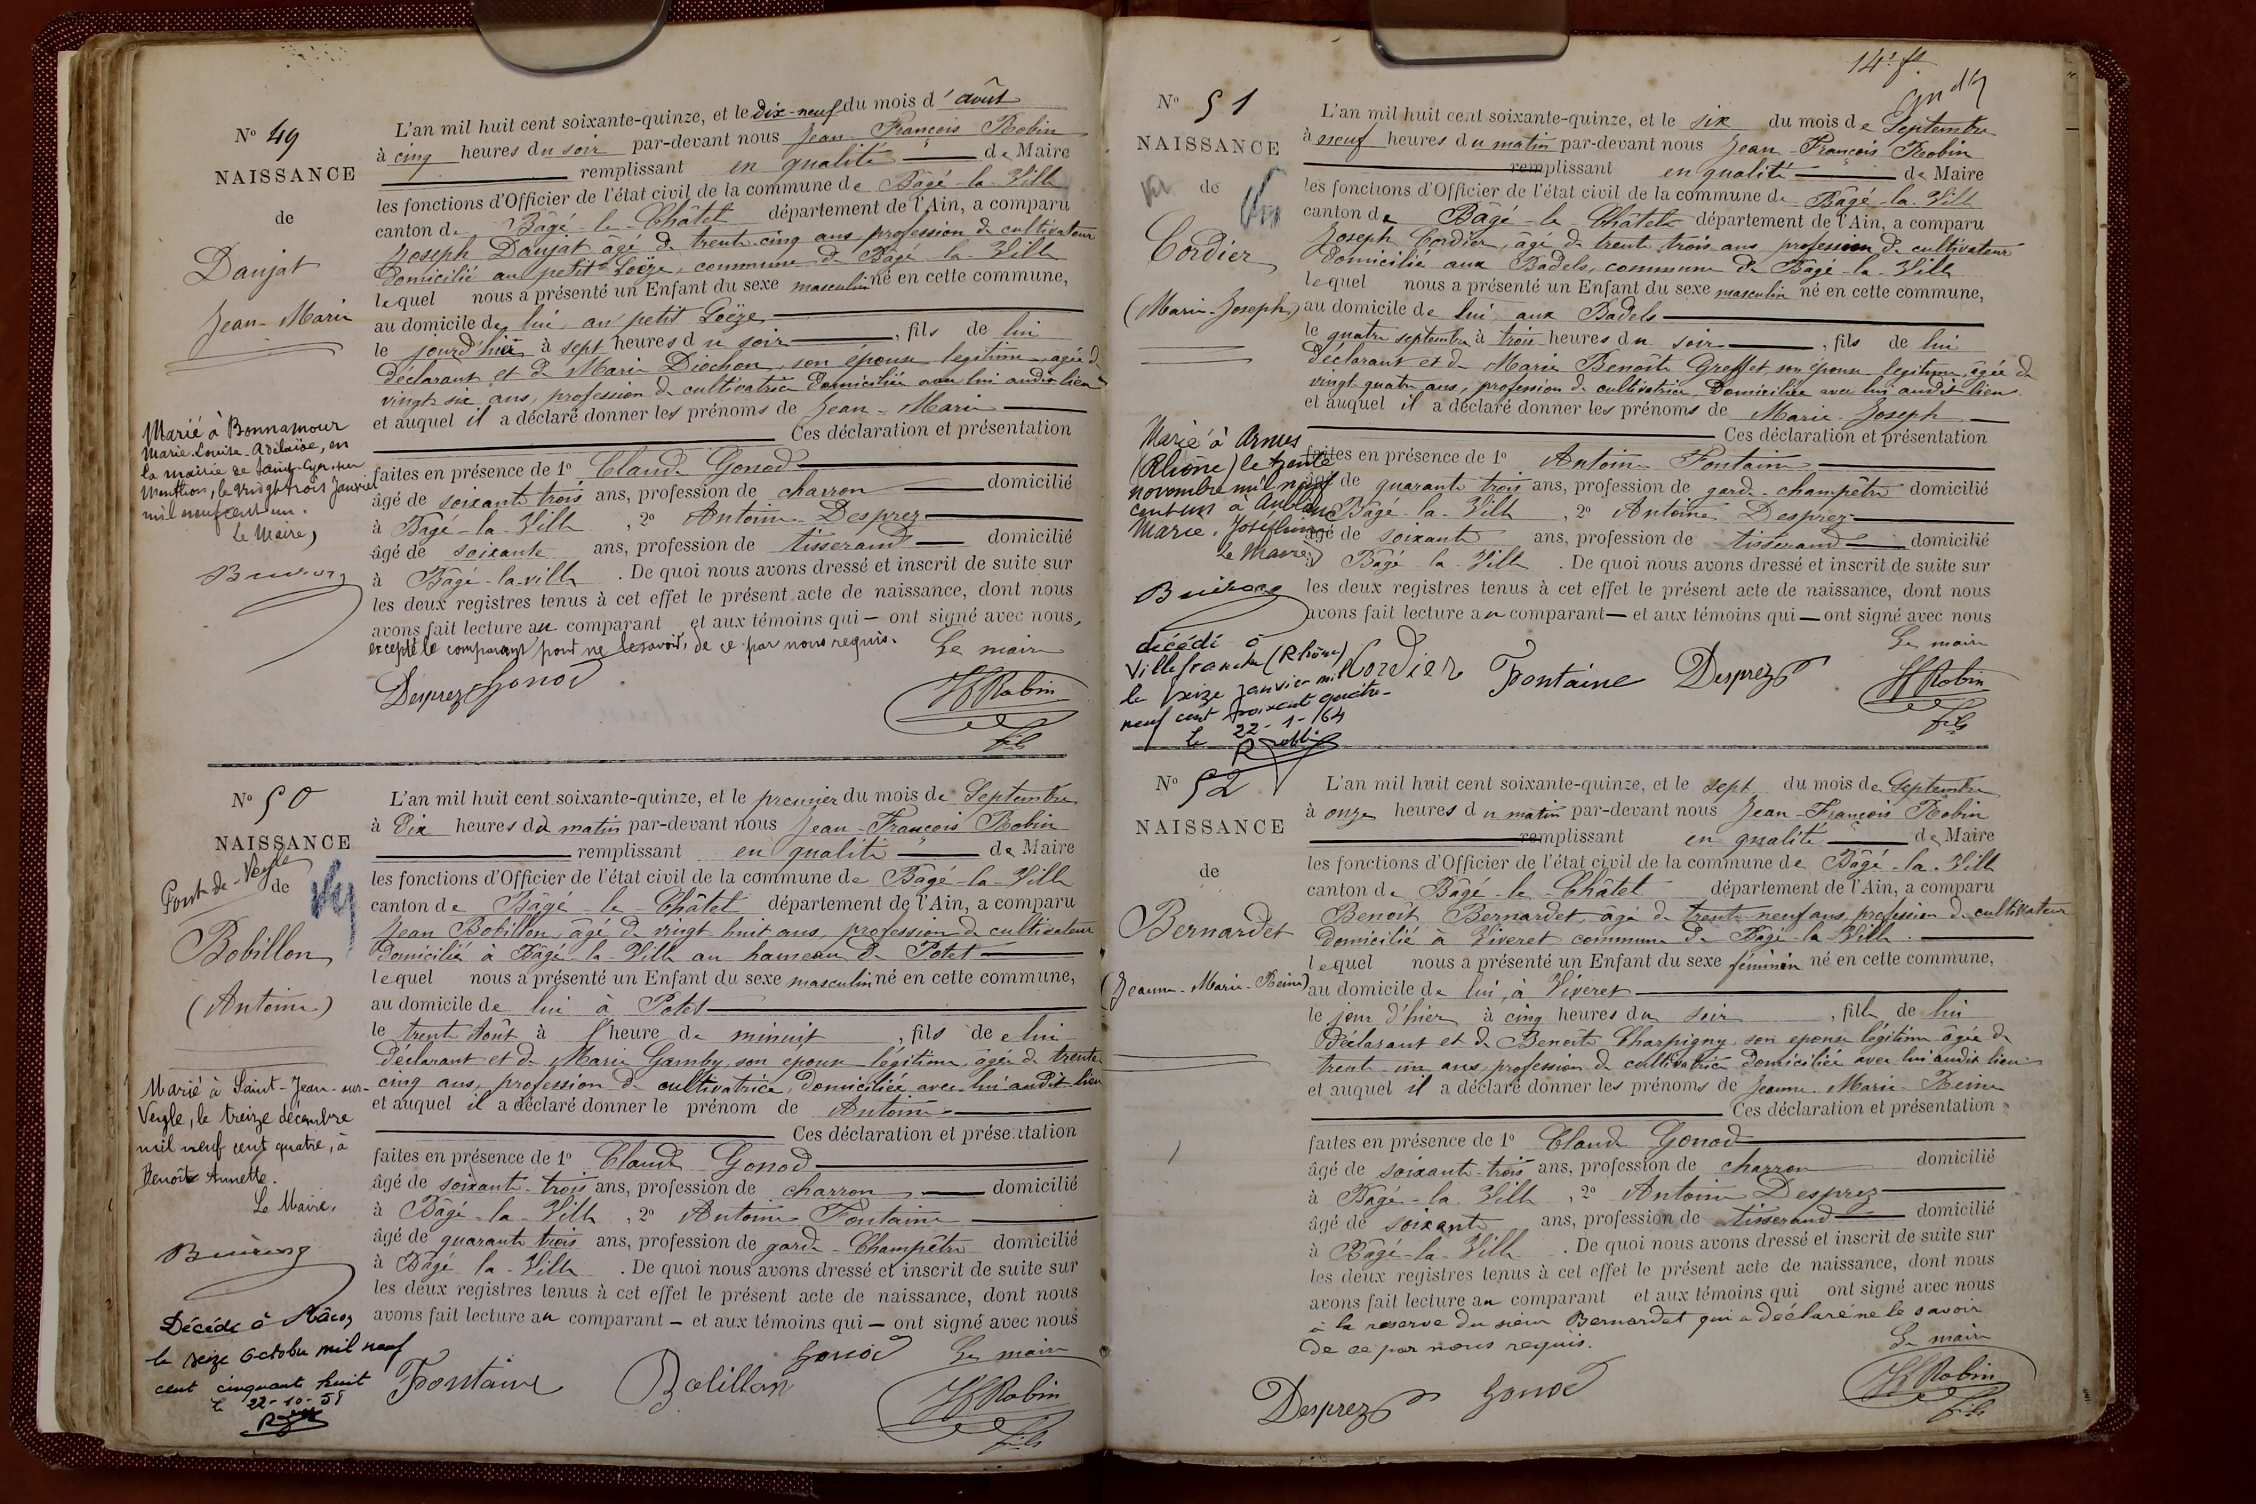 N° 49
NAISSANCE
de
Daujat
Jean-Marie
Marié à Bonnamour
Marie-Louise-Adélaïde, en
la mairie de Saint-Cyr-sur
Menthon, le vingt trois janvier
mil neuf cent un.
Le Maire,
L'an mil huit cent soixante-quinze, et le dix-neuf du mois d'août
à cinq heures du soir par-devant nous Jean-François Robin
remplissant en qualité de Maire
les fonctions d'Officier de l'état civil de la commune de Bâgé-la-Ville
canton de Bâgé-le-Châtel département de l'Ain, a comparu
Joseph Daujat agé de trente-cinq ans, profession de cultivateur
domicilié au petit Loëze, commune de Bâgé-la-Ville
lequel nous a présenté un Enfant du sexe masculin né en cette commune,
au domicile de lui, au petit Loëze
le jourd'hier à sept heures du soir, fils de lui
déclarant et de Marie Diochon, son épouse légitime, agée de
vingt six ans, profession de cultivatrice domiciliée avec lui audit lieu
et auquel il a déclaré donner les prénoms de Jean-Marie
Ces déclaration et présentation
faites en présence de 1° Claude Gonod
âgé de soixante trois ans, profession de charron domicilié
à Bâgé-la-Ville, 2° Antoine Desprez
âgé de soixante ans, profession de tisserand domicilié
à Bâgé-la-ville. De quoi nous avons dressé et inscrit de suite sur
les deux registres tenus à cet effet le présent acte de naissance, dont nous
avons fait lecture au comparant et aux témoins qui - ont signé avec nous,
excepté le comparant pour ne le savoir, de ce par nous requis.
Le maire
Desprez Gonod
JF Robin
fils
N° 50
NAISSANCE
Pont-de-Veyle
de
Bobillon
(Antoine)
Marié à Saint-Jean-sur-
Veyle, le treize décembre
mil neuf cent quatre, à
Benoîte Annette.
Le Maire,
Décédé à Mâcon
le seize octobre mil neuf
cent cinquante huit
le 22-10-58
L'an mil huit cent soixante-quinze, et le premier du mois de Septembre
à dix heures du matin par-devant nous Jean-François Robin
remplissant en qualité de Maire
les fonctions d'Officier de l'état civil de la commune de Bâgé-la-Ville
canton de Bâgé-le-Châtel département de l'Ain, a comparu
Jean Bobillon, âgé de vingt huit ans, profession de cultivateur
domicilié à Bâgé-la-Ville au hameau de Potet
lequel nous a présenté un Enfant du sexe masculin né en cette commune,
au domicile de lui à Potet
le trente août à l'heure de minuit, fils de lui
déclarant et de Marie Gamby son épouse légitime, âgée de trente
cinq ans, profession de cultivatrice, domiciliée avec lui audit lieu
et auquel il a déclaré donner le prénom de Antoine
Ces déclaration et présentation
faites en présence de 1° Claude Gonod
âgé de soixante-trois ans, profession de charron domicilié
à Bâgé-la-Ville, 2° Antoine Fontaine
âgé de quarante trois ans, profession de garde-Champêtre domicilié
à Bâgé la-Ville. De quoi nous avons dressé et inscrit de suite sur
les deux registres tenus à cet effet le présent acte de naissance, dont nous
avons fait lecture au comparant - et aux témoins qui - ont signé avec nous
Gonod Le maire
Fontaine Bobillon
JF Robin
fils
14e ft
N° 51
NAISSANCE
de
Cordier
(Marie-Joseph)
Marié à Arnas
(Rhône) le trente
novembre mil neuf
cent un à
Marie. Joséphine
Le Maire
décédé à
Villefranche (Rhône)
le seize janvier mil
neuf cent soixante quatre-
le 22-1-64
L'an mil huit cent soixante-quinze, et le six du mois de Septembre
à neuf heures du matin par-devant nous Jean-François Robin
remplissant en qualité de Maire
les fonctions d'Officier de l'état civil de la commune de Bâgé-la-Ville
canton de Bâgé-le-Châtel département de l'Ain, a comparu
Joseph Cordier, âgé de trente trois ans, profession de cultivateur
domicilié aux Badels, commune de Bâgé-la-Ville
lequel nous a présenté un Enfant du sexe masculin né en cette commune,
au domicile de lui aux Badels
le quatre septembre à trois heures du soir, fils de lui
déclarant et de Marie Benoîte Greffet son épouse légitime, âgée de
vingt quatre ans, profession de cultivatrice. Domiciliée avec lui audit lieu.
et auquel il a déclaré donner les prénoms de Marie-Joseph
Ces déclaration et présentation
faites en présence de 1° Antoine Fontaine
âgé de quarante trois ans, profession de garde-champêtre domicilié
Bâgé-la-Ville, 2° Antoine Desprez
âgé de soixante ans, profession de tisserand domicilié
Bâgé-la-Ville. De quoi nous avons dressé et inscrit de suite sur
les deux registres tenus à cet effet le présent acte de naissance, dont nous
avons fait lecture au comparant - et aux témoins qui - ont signé avec nous
Le maire
Cordier Fontaine Desprez
JF Robin
fils
N° 52
NAISSANCE
de
Bernardet
(Jeanne-Marie-Reine)
L'an mil huit cent soixante-quinze, et le sept du mois de Septembre
à onze heures du matin par-devant nous Jean-François Robin
remplissant en qualité de Maire
les fonctions d'Officier de l'état civil de la commune de Bâgé-la-Ville
canton de Bâgé-le-Châtel département de l'Ain, a comparu
Benoît Bernardet, âgé de trente-neuf ans, profession de cultivateur
domicilié à Viveret commune de Bâgé-la Ville.
lequel nous a présenté un Enfant du sexe féminin né en cette commune,
au domicile de lui, à Viveret
le jour d'hier à cinq heures du soir, fille de lui
déclarant et de Benoîte Charpigny son épouse légitime âgée de
trente-un ans, profession de cultivatrice domiciliée avec lui audit lieu
et auquel il a déclaré donner les prénoms de Jeanne-Marie-Reine
Ces déclaration et présentation
faites en présence de 1° Claude Gonod
âgé de soixante-trois ans, profession de charron domicilié
à Bâgé-la-Ville, 2° Antoine Desprez
âgé de soixante ans, profession de tisserand domicilié
à Bâgé-la-Ville. De quoi nous avons dressé et inscrit de suite sur
les deux registres tenus à cet effet le présent acte de naissance, dont nous
avons fait lecture au comparant et aux témoins qui ont signé avec nous
à la reserve du sieur Bernardet qui a déclaré ne le savoir
de ce par nous requis.
Le maire
Desprez Gonod
JF Robin
fils